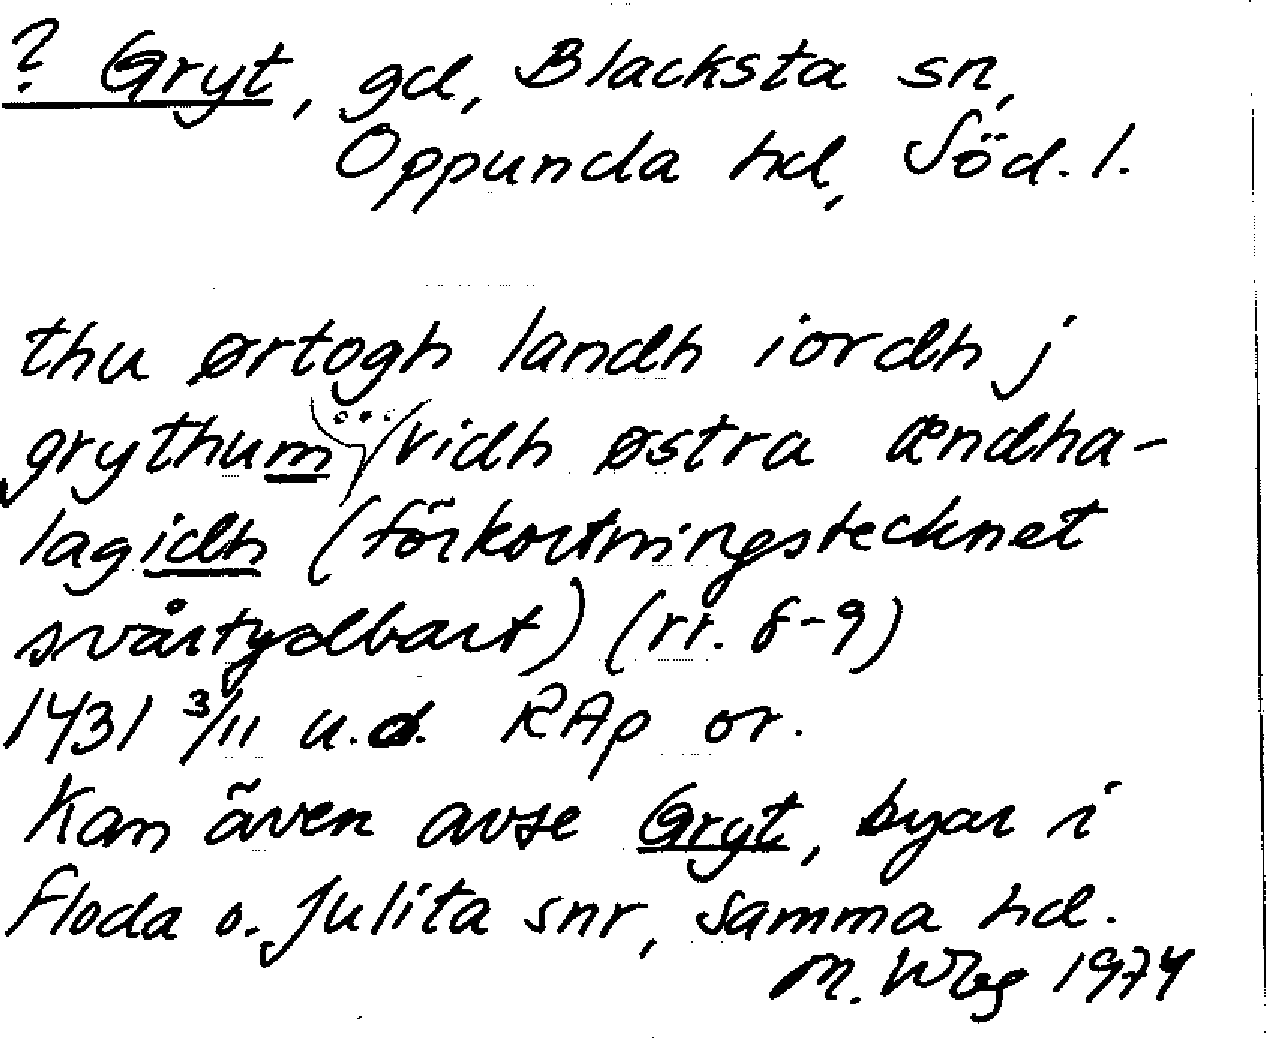 ? Gryt, gd, Blacksta sn,
Oppunda hd, Söd. l.
thu ørtogh landh iordh j
grythum vidh østra ændha-
lagidh (förkortningstecknet
svårtydbart) (rr. 8-9)
1431 3/11 u.d. RAp or.
Kan även avse Gryt, byar i
Floda o. Julita snr, samma hd.
M. Wbg 1974